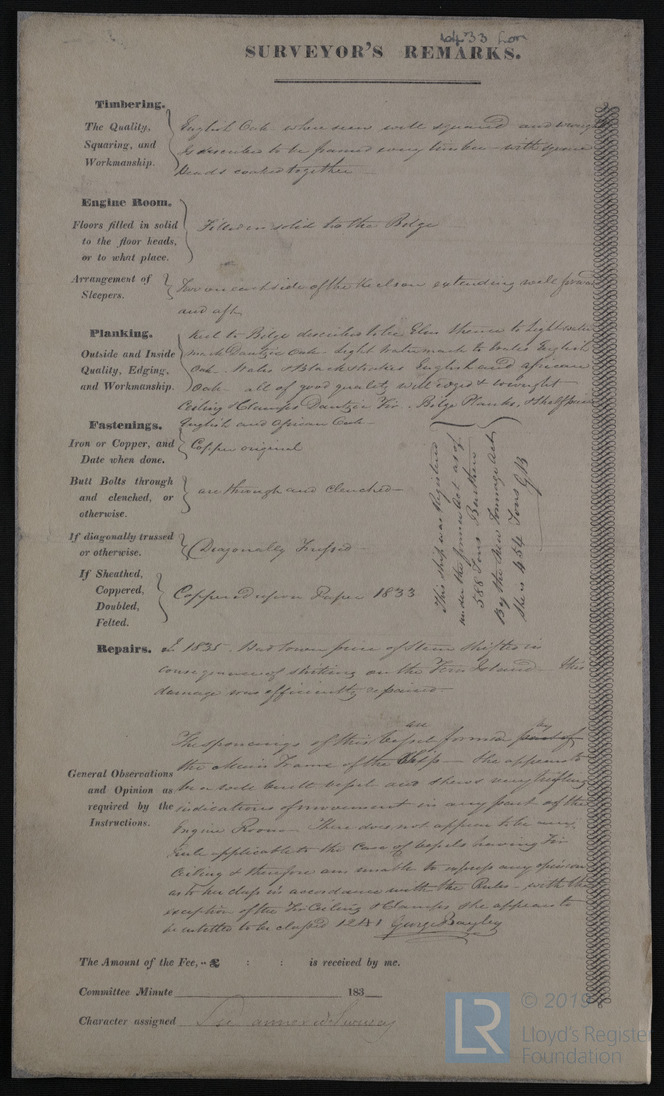 6433 Lon
SURVEYOR'S REMARKS.
Timbering.
The Quality,
Squaring, and
Workmanship.
English Oak where seen well squared and wrought
is described to be framed every timber with square
heads coated together
Engine Room.
Floors filled in solid
to the floor heads,
or to what place.
Filled in solid to the Bilge
Arrangement of
Sleepers.
Two on each side of the Keelson extending well forward
and aft
Planking.
Outside and Inside
Quality, Edging,
and Workmanship.
Keel to Bilge described to be Elm thence to Light water
mark Dantzic Oak. Light Water mark to Wales English
Oak. Wales & Blackstrakes English and African
Oak all of good quality well edged & wrought
Ceiling & Clamps Dantzic Fir. Bilge Planks, & Shelf pieces
English and African Oak
Fastenings.
Iron or Copper, and
Date when done.
Copper original
Butt Bolts through
and clenched, or
otherwise.
are through and clenched
If diagonally trussed
or otherwise.
Diagonally Trussed
If Sheathed,
Coppered,
Doubled,
Felted.
Coppered upon Paper 1833
This ship was Registered
under the former act as of
588 Tons Burthen
By the New Tonnage Act
She is 454 Tons GB
Repairs.
In 1835. Had lower piece of Stem shifted in
consequence of striking on the Island this
damage was efficiently repaired
General Observations
and Opinion as
required by the
Instructions.
are by
The sponcings of this Vessel formed part of
the Main Frame of the Ship She appears to
be a well built vessel and shews very trifling
indications of movement in any part of the
Engine Room There does not appear to be any
rule applicable to the Case of Vessels having Fir
Ceiling & therefore am unable to express any opinion
as to her class in accordance with the Rules with the
exception of the Fir Ceiling & Clamps she appears to
be entitled to be classed 12 A 1 George Bayley
The Amount of the Fee, -- £ : : is received by me.
Committee Minute 183
Character assigned See annexed Survey
LR
© 2019
Lloyd's Register
Foundation